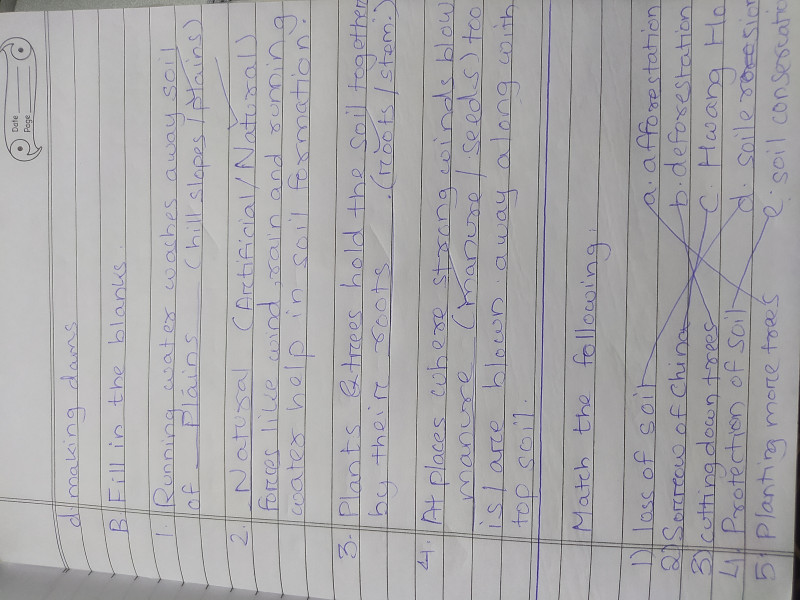 Date
Page
d. making dams
B. Fill in the blanks.
1. Running water waches away soil
of Plains (hill slopes/plains)
2. Natural (Artificial/Natural)
forces like wind, rain and running
water help in soil formation.
3. Plants & trees hold the soil together
by their roots. (roots/stem.)
4. At places where strong winds blow
manure (manure/seeds) too
is/are blown away along with
top soil.
Match the following.
1) loss of soil a. afforostation
2) Sorrow of China b. deforestation
3) cutting down trees C. Hwang Ho
4. Protection of soil d. soile
5. Planting more trees e. soil